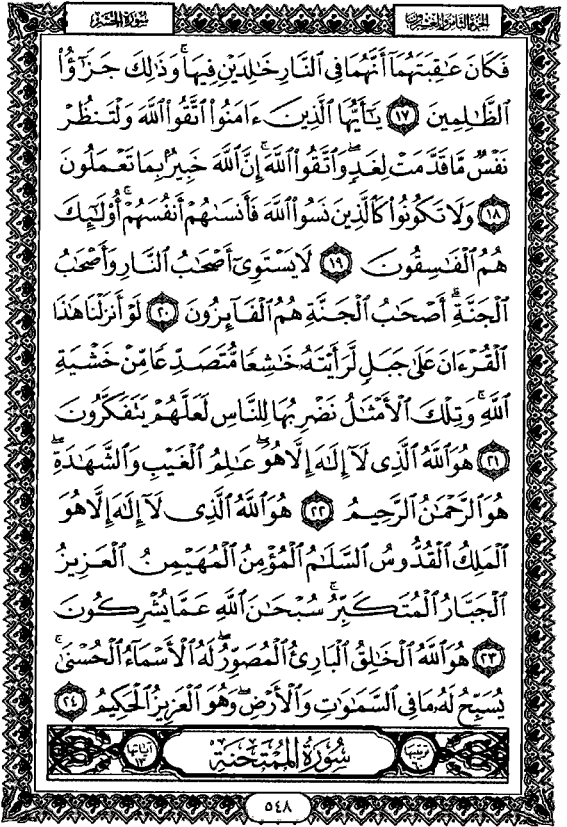 الجزء الثامن والعشرون سورة الحشر
فَكَانَ عَٰقِبَتَهُمَآ أَنَّهُمَا فِى ٱلنَّارِ خَٰلِدَيْنِ فِيهَا ۚ وَذَٰلِكَ جَزَٰٓؤُا۟
ٱلظَّٰلِمِينَ ١٧ يَٰٓأَيُّهَا ٱلَّذِينَ ءَامَنُوا۟ ٱتَّقُوا۟ ٱللَّهَ وَلْتَنظُرْ
نَفْسٌ مَّا قَدَّمَتْ لِغَدٍ ۖ وَٱتَّقُوا۟ ٱللَّهَ ۚ إِنَّ ٱللَّهَ خَبِيرٌۢ بِمَا تَعْمَلُونَ
١٨ وَلَا تَكُونُوا۟ كَٱلَّذِينَ نَسُوا۟ ٱللَّهَ فَأَنسَىٰهُمْ أَنفُسَهُمْ ۚ أُو۟لَٰٓئِكَ
هُمُ ٱلْفَٰسِقُونَ ١٩ لَا يَسْتَوِىٓ أَصْحَٰبُ ٱلنَّارِ وَأَصْحَٰبُ
ٱلْجَنَّةِ ۚ أَصْحَٰبُ ٱلْجَنَّةِ هُمُ ٱلْفَآئِزُونَ ٢٠ لَوْ أَنزَلْنَا هَٰذَا
ٱلْقُرْءَانَ عَلَىٰ جَبَلٍ لَّرَأَيْتَهُۥ خَٰشِعًا مُّتَصَدِّعًا مِّنْ خَشْيَةِ
ٱللَّهِ ۚ وَتِلْكَ ٱلْأَمْثَٰلُ نَضْرِبُهَا لِلنَّاسِ لَعَلَّهُمْ يَتَفَكَّرُونَ
٢١ هُوَ ٱللَّهُ ٱلَّذِى لَآ إِلَٰهَ إِلَّا هُوَ ۖ عَٰلِمُ ٱلْغَيْبِ وَٱلشَّهَٰدَةِ ۖ
هُوَ ٱلرَّحْمَٰنُ ٱلرَّحِيمُ ٢٢ هُوَ ٱللَّهُ ٱلَّذِى لَآ إِلَٰهَ إِلَّا هُوَ
ٱلْمَلِكُ ٱلْقُدُّوسُ ٱلسَّلَٰمُ ٱلْمُؤْمِنُ ٱلْمُهَيْمِنُ ٱلْعَزِيزُ
ٱلْجَبَّارُ ٱلْمُتَكَبِّرُ ۚ سُبْحَٰنَ ٱللَّهِ عَمَّا يُشْرِكُونَ
٢٣ هُوَ ٱللَّهُ ٱلْخَٰلِقُ ٱلْبَارِئُ ٱلْمُصَوِّرُ ۖ لَهُ ٱلْأَسْمَآءُ ٱلْحُسْنَىٰ ۚ
يُسَبِّحُ لَهُۥ مَا فِى ٱلسَّمَٰوَٰتِ وَٱلْأَرْضِ ۖ وَهُوَ ٱلْعَزِيزُ ٱلْحَكِيمُ ٢٤
ترتيبها ٦٠ سُورَةُ ٱلْمُمْتَحنَةِ آياتها ١٣
٥٤٨